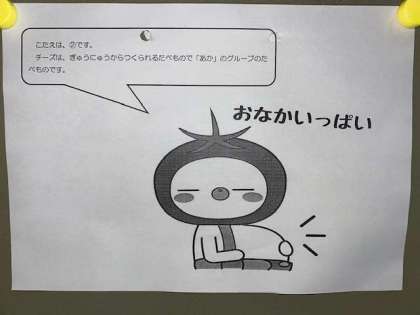 こたえは、②です。
チーズは、ぎゅうにゅうからつくられるたべもので「あか」のグループのた
べものです。
おなかいっぱい